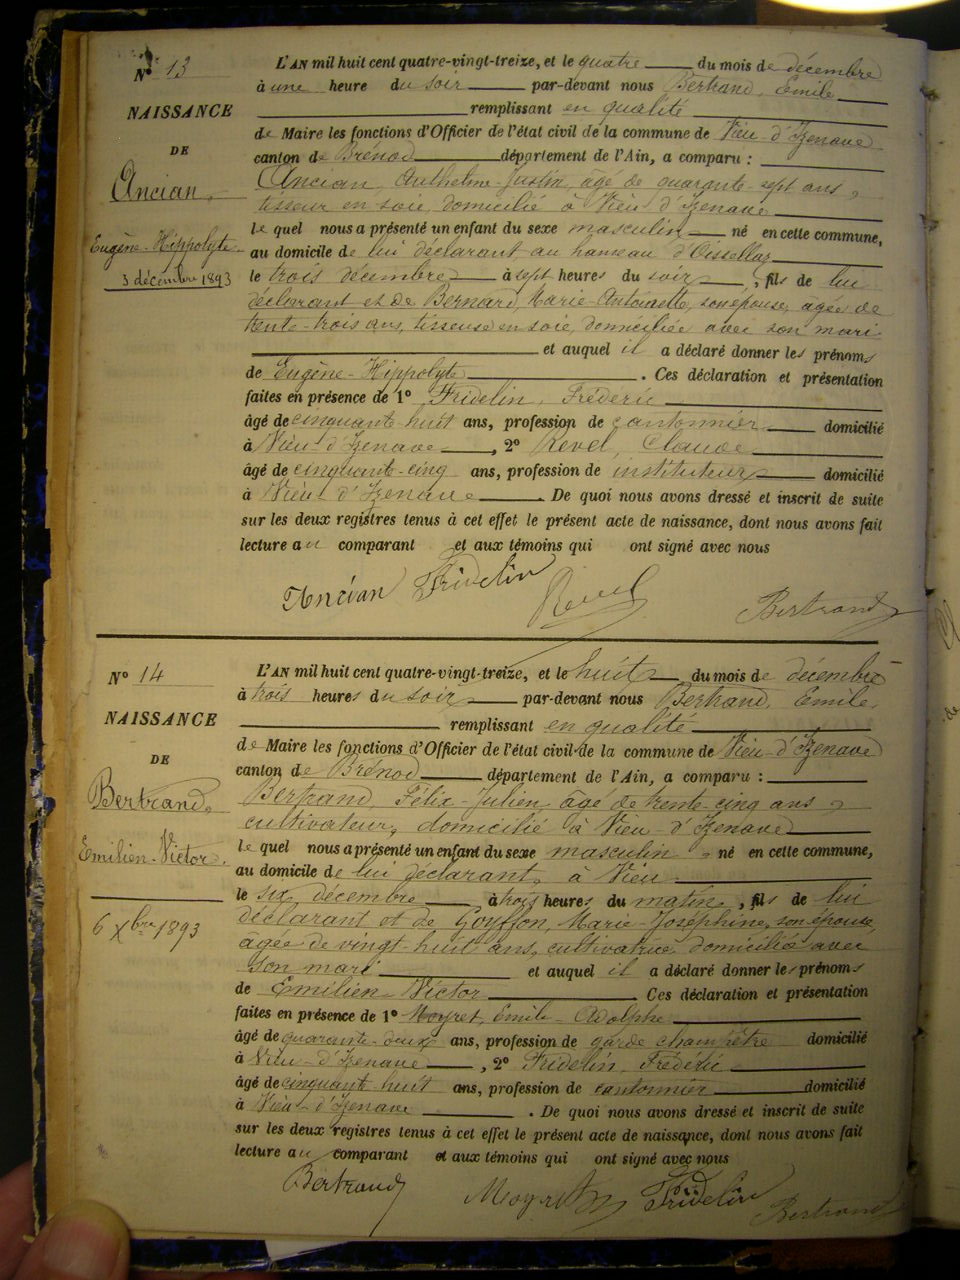 N° 13
NAISSANCE
DE
Ancian,
Eugène-Hippolyte
3 décembre 1893
L'AN mil huit cent quatre-vingt-treize, et le quatre du mois de décembre
à une heure du soir par-devant nous Bertrand, Emile
remplissant en qualité
de Maire les fonctions d'Officier de l'état civil de la commune de Vieu-d'Izenave
canton de Brénod département de l'Ain, a comparu :
Ancian, Anthelme-Justin, âgé de quarante-sept ans,
tisseur en soie, domicilié à Vieu d'Izenave
le quel nous a présenté un enfant du sexe masculin né en cette commune,
au domicile de lui déclarant au hameau d'Oisellaz
le trois décembre à sept heures du soir, fils de lui
déclarant et de Bernard, Marie-Antoinette, son épouse, agée de
trente-trois ans, tisseuse en soie, domiciliée avec son mari
et auquel il a déclaré donner les prénoms
de Eugène-Hippolyte. Ces déclaration et présentation
faites en présence de 1° Fridelin, Frédéric
âgé de cinquante huit ans, profession de cantonnier domicilié
à Vieu-d'Izenave, 2° Revel, Claude
âgé de cinquante-cinq ans, profession de instituteur domicilié
à Vieu-d'Izenave. De quoi nous avons dressé et inscrit de suite
sur les deux registres tenus à cet effet le présent acte de naissance, dont nous avons fait
lecture au comparant et aux témoins qui ont signé avec nous
Ancian Fridelin Revel Bertrand
N° 14
NAISSANCE
DE
Bertrand,
Emilien-Victor.
6 Xbre 1893
L'AN mil huit cent quatre-vingt-treize, et le huit du mois de décembre
à trois heures du soir par-devant nous Bertrand, Emile,
remplissant en qualité
de Maire les fonctions d'Officier de l'état civil de la commune de Vieu-d'Izenave
canton de Brénod département de l'Ain, a comparu :
Bertrand, Félix-Julien, âgé de trente-cinq ans,
cultivateur, domicilié à Vieu-d'Izenave
le quel nous a présenté un enfant du sexe masculin, né en cette commune,
au domicile de lui déclarant, à Vieu
le six décembre à trois heures du matin, fils de lui
déclarant et de Goyffon, Marie-Joséphine, son épouse,
âgée de vingt huit ans, cultivatrice, domiciliée avec
son mari et auquel il a déclaré donner les prénoms
de Emilien-Victor Ces déclaration et présentation
faites en présence de 1° Moyret, Emile-Adolphe
âgé de quarante-deux ans, profession de garde champêtre domicilié
à Vieu-d'Izenave, 2° Fridelin, Frédéric
âgé de cinquant huit ans, profession de cantonnier domicilié
à Vieu-d'Izenave. De quoi nous avons dressé et inscrit de suite
sur les deux registres tenus à cet effet le présent acte de naissance, dont nous avons fait
lecture au comparant et aux témoins qui ont signé avec nous
Bertrand Moyret Fridelin Bertrand